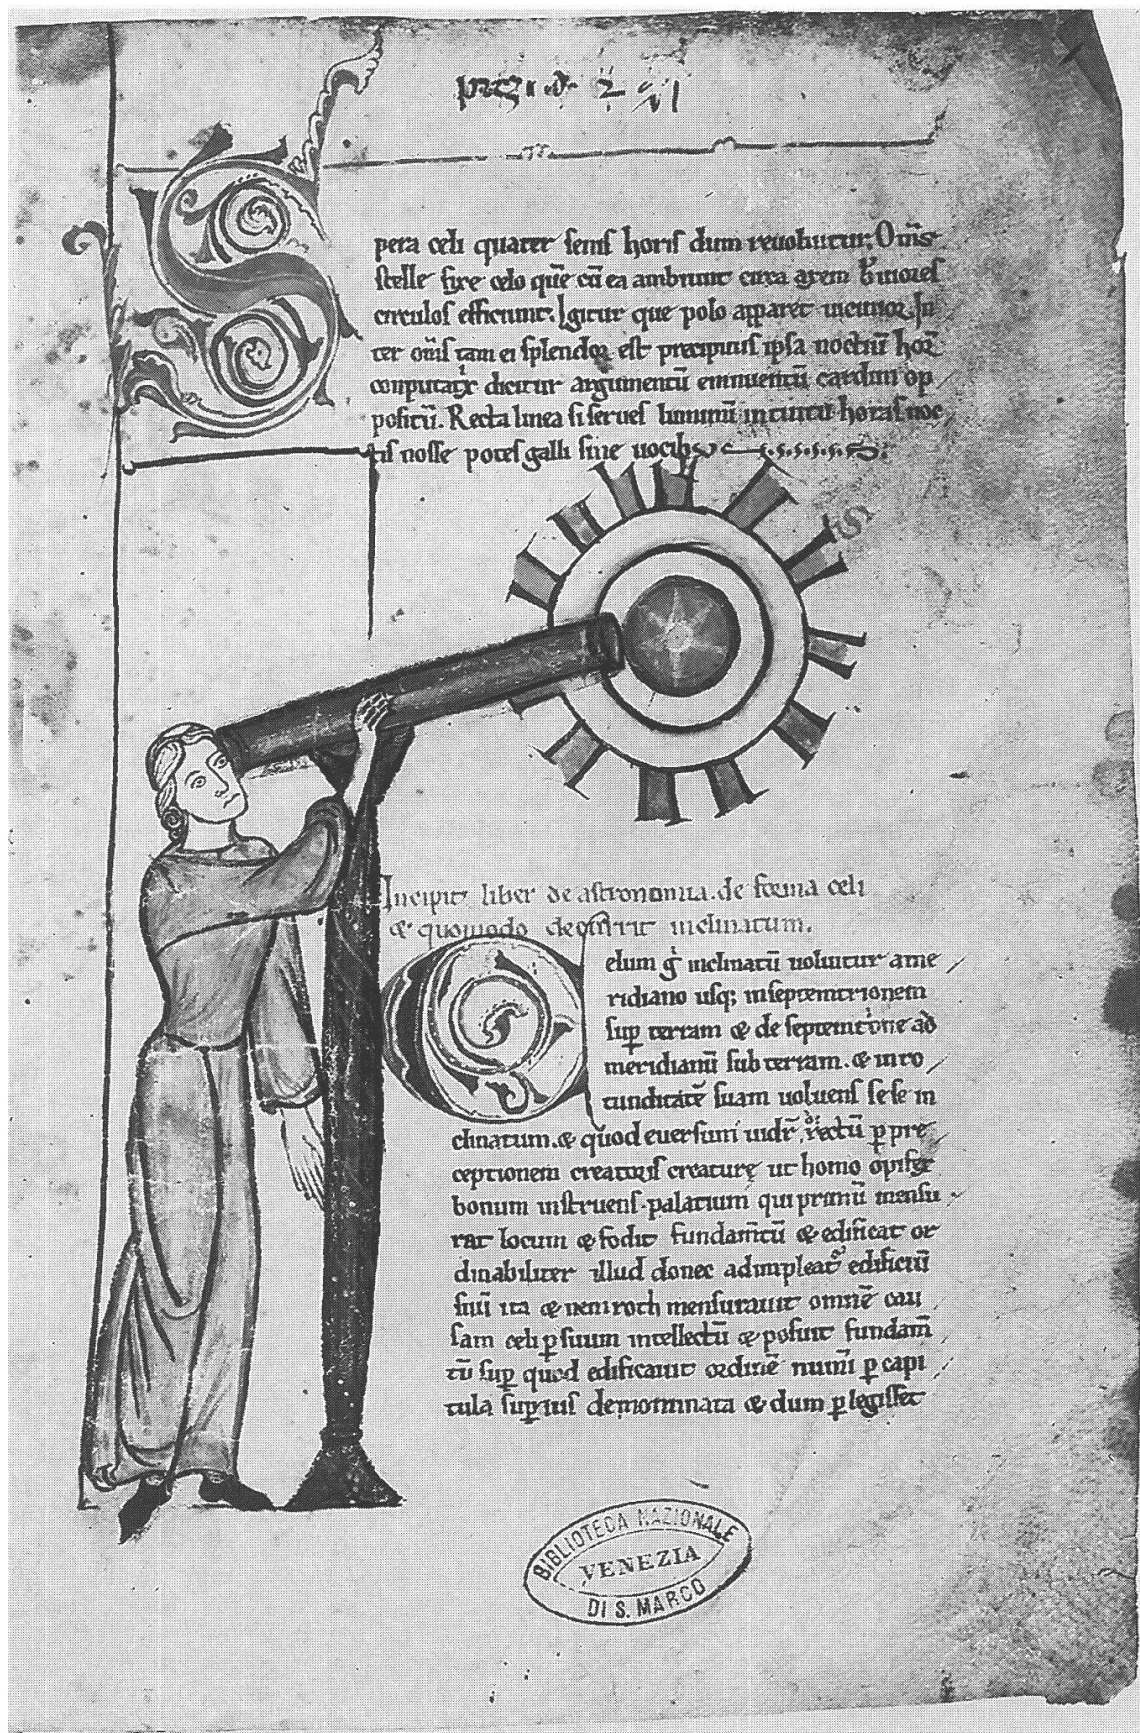 pera celi quater senis horis dum reuoluitur; Om̄s
stelle fixe celo que cū ea ambiunt circa axem breuiores
circulos efficiunt. Igitur que polo apparet uicinior In
ter om̄s tam ei splendor est precipuus ipsa noctiū hor
conputatrix dicitur argumentū eminentū cardini op
positū. Recta linea si serues luminū in circū horas noc
tis nosse potes galli sine uocib;
Incipit liber de astronomia. de forma celi
& quomodo decurrit inclinatum.
Celum gͥ inclinatū uoluitur a me
ridiano usq; in septemtrionem
sup̱ terram & de septemtͥone ad
meridianū sub terram. & in ro
tunditatē suam uoluens se se in
clinatum. & quod euersum uidr̄ rectū p̱ pre
ceptionem creatoris creaturę ut homo opifex
bonum instruens palatium qui primū mensu
rat locum & fodit fundam̄tū & edificat or
dinabiliter illud donec adimpleat edificiū
suū ita & nemroth mensurauit omnē cau
sam celi p̱ suum intellectū & posuit fundam̄
tū sup̱ quod edificauit ordinē num̄i p̱ capi
tula sup̱ius denominata & dum p̱legisset
BIBLIOTECA NAZIONALE
VENEZIA
DI S. MARCO